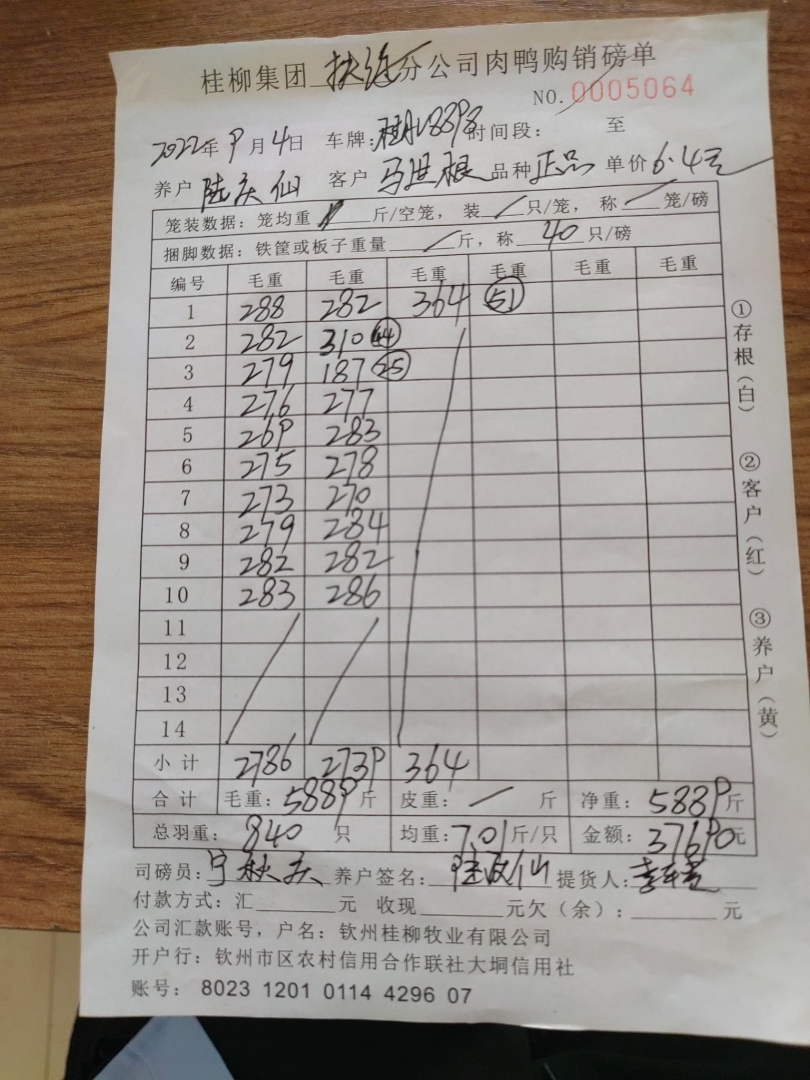 桂柳集团 扶绥 分公司肉鸭购销磅单
NO. 0005064
2022年 9月 4日 车牌: 时间段: 至
养户 陆庆仙 客户 马进根 品种 正品 单价 6.4元
笼装数据: 笼均重 斤/空笼, 装 / 只/笼, 称 / 笼/磅
捆脚数据: 铁筐或板子重量 / 斤, 称 40 只/磅
编号 毛重 毛重 毛重 毛重 毛重 毛重
1 288 282 364 51
2 282 310 44
3 279 187 25
4 276 277
5 269 283
6 275 278
7 273 270
8 279 284
9 282 282
10 283 286
11
12
13
14
小计 2786 2739 364
合计 毛重: 5889 斤 皮重: / 斤 净重: 5889 斤
总羽重: 840 只 均重: 7.01 斤/只 金额: 37690 元
司磅员: 养户签名: 提货人:
付款方式: 汇 元 收现 元欠(余): 元
公司汇款账号, 户名: 钦州桂柳牧业有限公司
开户行: 钦州市区农村信用合作联社大垌信用社
账号: 8023 1201 0114 4296 07
①存根(白)
②客户(红)
③养户(黄)